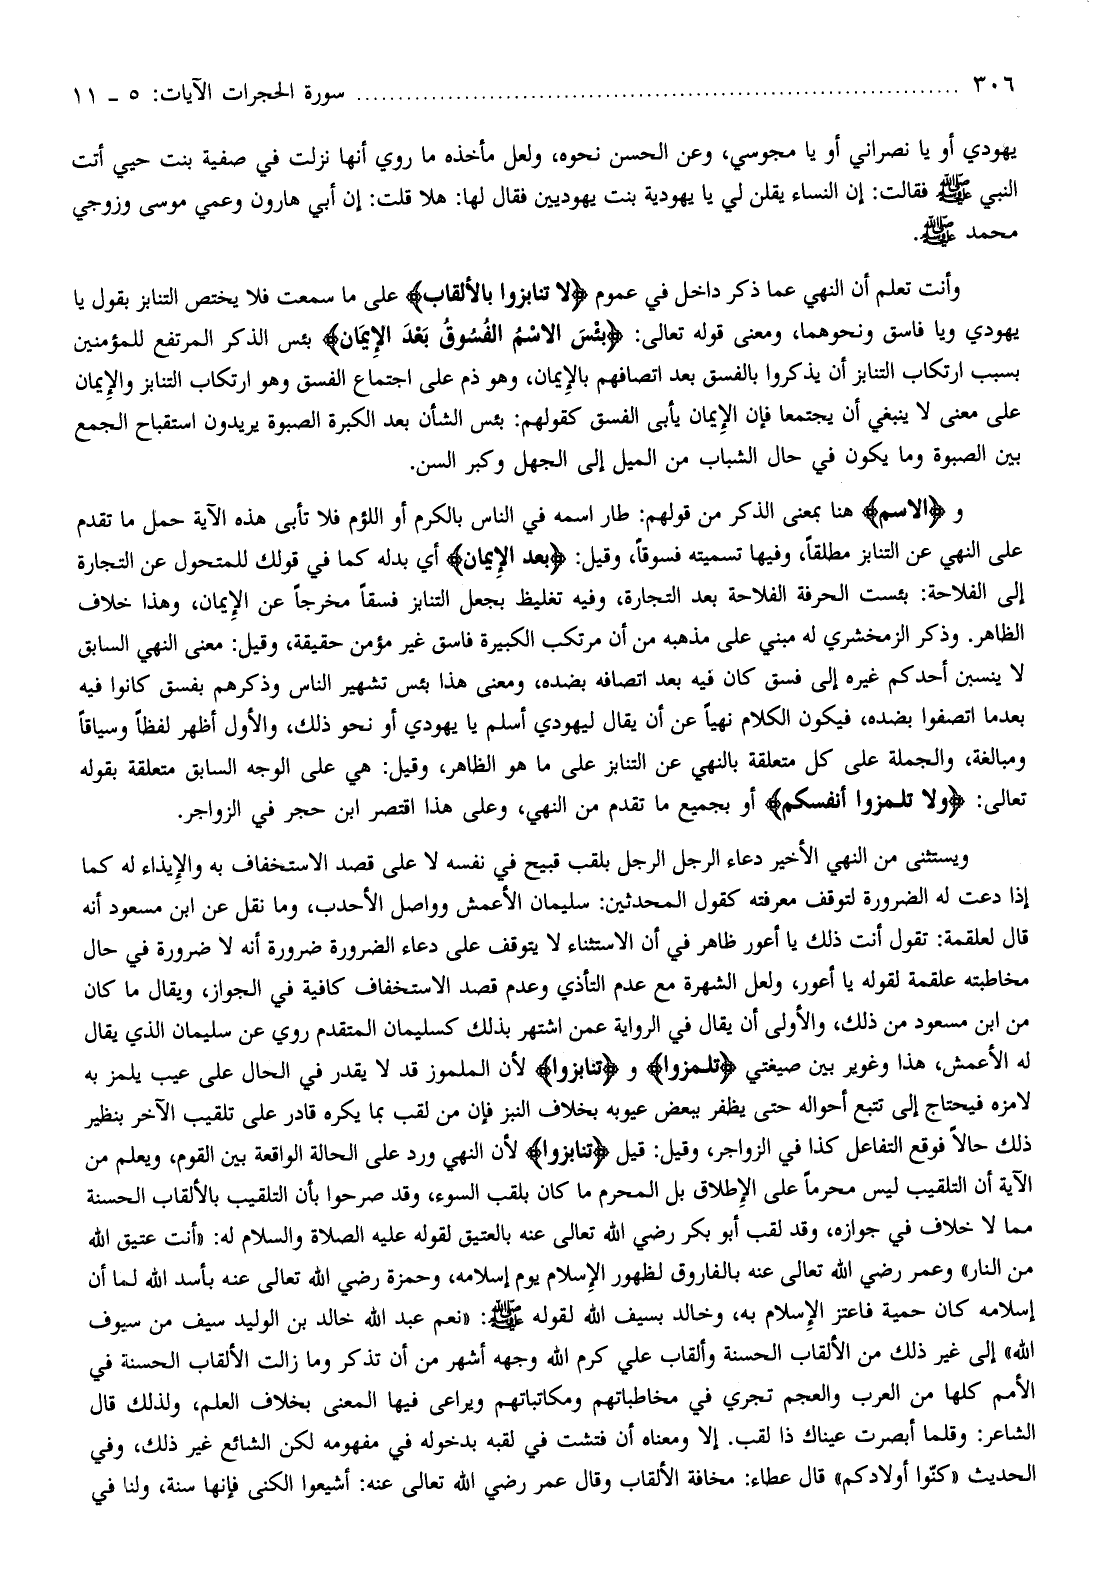 ٣٠٦ ............................................................ سورة الحجرات الآيات: ٥ ـ ١١
يهودي أو يا نصراني أو يا مجوسي، وعن الحسن نحوه، ولعل مأخذه ما روي أنها نزلت في صفية بنت حيي أتت
النبي ﷺ فقالت: إن النساء يقلن لي يا يهودية بنت يهوديين فقال لها: هلا قلت: إن أبي هارون وعمي موسى وزوجي
محمد ﷺ.
وأنت تعلم أن النهي عما ذكر داخل في عموم ﴿لا تنابزوا بالألقاب﴾ على ما سمعت فلا يختص التنابز بقول يا
يهودي ويا فاسق ونحوهما، ومعنى قوله تعالى: ﴿بِئْسَ الاسْمُ الفُسُوقُ بَعْدَ الإِيمَان﴾ بئس الذكر المرتفع للمؤمنين
بسبب ارتكاب التنابز أن يذكروا بالفسق بعد اتصافهم بالإيمان، وهو ذم على اجتماع الفسق وهو ارتكاب التنابز والإيمان
على معنى لا ينبغي أن يجتمعا فإن الإيمان يأبى الفسق كقولهم: بئس الشأن بعد الكبرة الصبوة يريدون استقباح الجمع
بين الصبوة وما يكون في حال الشباب من الميل إلى الجهل وكبر السن.
و ﴿الاسم﴾ هنا بمعنى الذكر من قولهم: طار اسمه في الناس بالكرم أو اللؤم فلا تأبى هذه الآية حمل ما تقدم
على النهي عن التنابز مطلقاً، وفيها تسميته فسوقاً، وقيل: ﴿بعد الإيمان﴾ أي بدله كما في قولك للمتحول عن التجارة
إلى الفلاحة: بئست الحرفة الفلاحة بعد التجارة، وفيه تغليظ بجعل التنابز فسقاً مخرجاً عن الإيمان، وهذا خلاف
الظاهر. وذكر الزمخشري له مبني على مذهبه من أن مرتكب الكبيرة فاسق غير مؤمن حقيقة، وقيل: معنى النهي السابق
لا ينسبن أحدكم غيره إلى فسق كان فيه بعد اتصافه بضده، ومعنى هذا بئس تشهير الناس وذكرهم بفسق كانوا فيه
بعدما اتصفوا بضده، فيكون الكلام نهياً عن أن يقال ليهودي أسلم يا يهودي أو نحو ذلك، والأول أظهر لفظاً وسياقاً
ومبالغة، والجملة على كل متعلقة بالنهي عن التنابز على ما هو الظاهر، وقيل: هي على الوجه السابق متعلقة بقوله
تعالى: ﴿ولا تلمزوا أنفسكم﴾ أو بجميع ما تقدم من النهي، وعلى هذا اقتصر ابن حجر في الزواجر.
ويستثنى من النهي الأخير دعاء الرجل الرجل بلقب قبيح في نفسه لا على قصد الاستخفاف به والإيذاء له كما
إذا دعت له الضرورة لتوقف معرفته كقول المحدثين: سليمان الأعمش وواصل الأحدب، وما نقل عن ابن مسعود أنه
قال لعلقمة: تقول أنت ذلك يا أعور ظاهر في أن الاستثناء لا يتوقف على دعاء الضرورة ضرورة أنه لا ضرورة في حال
مخاطبته علقمة لقوله يا أعور، ولعل الشهرة مع عدم التأذي وعدم قصد الاستخفاف كافية في الجواز، ويقال ما كان
من ابن مسعود من ذلك، والأولى أن يقال في الرواية عمن اشتهر بذلك كسليمان المتقدم روي عن سليمان الذي يقال
له الأعمش، هذا وغوير بين صيغتي ﴿تلمزوا﴾ و ﴿تنابزوا﴾ لأن الملموز قد لا يقدر في الحال على عيب يلمز به
لامزه فيحتاج إلى تتبع أحواله حتى يظفر ببعض عيوبه بخلاف النبز فإن من لقب بما يكره قادر على تلقيب الآخر بنظير
ذلك حالاً فوقع التفاعل كذا في الزواجر، وقيل: قيل ﴿تنابزوا﴾ لأن النهي ورد على الحالة الواقعة بين القوم، ويعلم من
الآية أن التلقيب ليس محرماً على الإطلاق بل المحرم ما كان بلقب السوء، وقد صرحوا بأن التلقيب بالألقاب الحسنة
مما لا خلاف في جوازه، وقد لقب أبو بكر رضي الله تعالى عنه بالعتيق لقوله عليه الصلاة والسلام له: «أنت عتيق الله
من النار» وعمر رضي الله تعالى عنه بالفاروق لظهور الإسلام يوم إسلامه، وحمزة رضي الله تعالى عنه بأسد الله لما أن
إسلامه كان حمية فاعتز الإسلام به، وخالد بسيف الله لقوله ﷺ: «نعم عبد الله خالد بن الوليد سيف من سيوف
الله» إلى غير ذلك من الألقاب الحسنة وألقاب علي كرم الله وجهه أشهر من أن تذكر وما زالت الألقاب الحسنة في
الأمم كلها من العرب والعجم تجري في مخاطباتهم ومكاتباتهم ويراعى فيها المعنى بخلاف العلم، ولذلك قال
الشاعر: وقلما أبصرت عيناك ذا لقب. إلا ومعناه أن فتشت في لقبه بدخوله في مفهومه لكن الشائع غير ذلك، وفي
الحديث «كنّوا أولادكم» قال عطاء: مخافة الألقاب وقال عمر رضي الله تعالى عنه: أشيعوا الكنى فإنها سنة، ولنا في